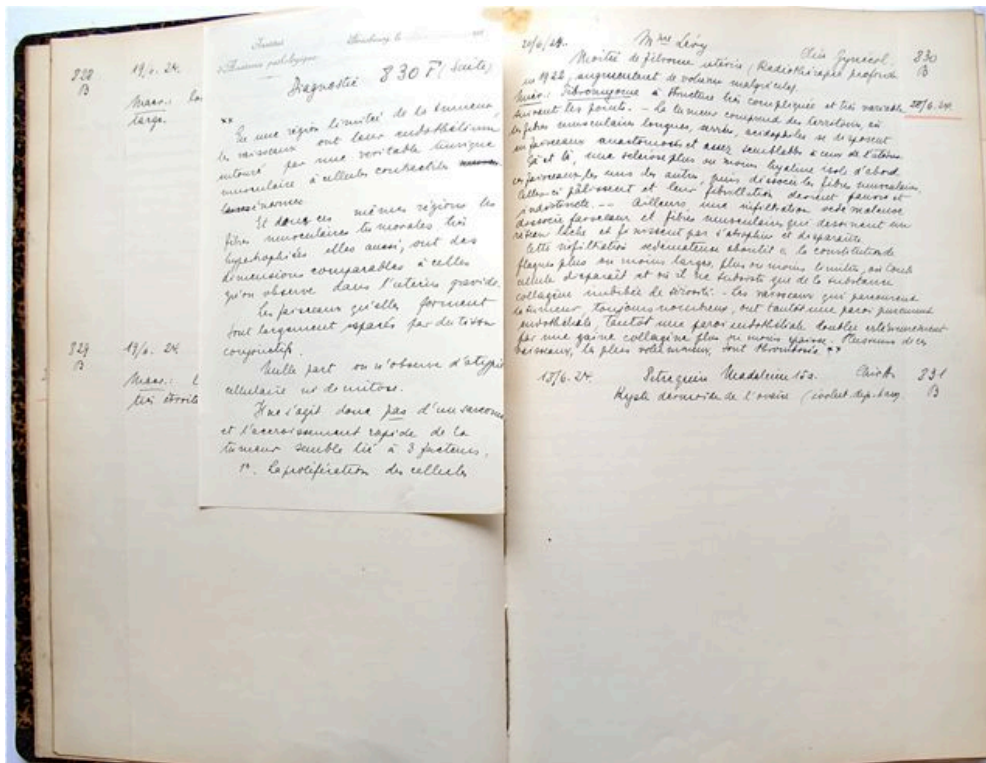 828
B
19/6. 24.
Macr.:
large.
829
B
19/6. 24.
Macr.:
très étroite
Institut Strasbourg, le
d'Anatomie pathologique
Diagnostic 830 B (suite)
**
En une région limitée de la tumeur,
les vaisseaux ont leur endothélium
entouré par une véritable tunique
musculaire à cellules contractiles
énormes.
Et dans ces mêmes régions les
fibres musculaires tumorales très
hypertrophiées elles aussi, ont des
dimensions comparables à celles
qu'on observe dans l'utérus gravide.
Les faisceaux qu'elles forment
sont largement séparés par du tissu
conjonctif.
Nulle part on n'observe d'atypie
cellulaire ni de mitose.
Il ne s'agit donc pas d'un sarcome
et l'accroissement rapide de la
tumeur semble lié à 3 facteurs.
1°. La prolifération des cellules
20/6/24. Mme Lévy Clin Gynécol. 830
B
Moitié de fibrome utérin (Radiothérapie profonde
en 1922, augmentant de volume malgré cela).
Micr.: Fibromyome à structure très compliquée et très variable 28/6.24.
suivant les points. - La tumeur comprend des territoires, où
les fibres musculaires longues, serrées, acidophiles se disposent
en faisceaux anastomosés et assez semblables à ceux de l'utérus.
Çà et là, une sclérose plus ou moins hyaline isole d'abord
ces faisceaux les uns des autres, puis dissocie les fibres musculaires.
Celles-ci pâlissent et leur fibrillation devient pauvre et
indistincte. -- Ailleurs, une infiltration oedémateuse
dissocie faisceaux et fibres musculaires qui dessinent un
réseau lâche et finissent par s'atrophier et disparaître.
Cette infiltration oedémateuse aboutit à la constitution de
flaques plus ou moins larges, plus ou moins limitées, où toute
cellule disparaît et où il ne subsiste que de la substance
collagène imbibée de sérosité. - Les vaisseaux qui parcourent
la tumeur, toujours nombreux, ont tantôt une paroi purement
endothéliale, tantôt une paroi endothéliale doublée extérieurement
par une gaine collagène plus ou moins épaisse. Plusieurs de ces
vaisseaux, les plus volumineux, sont thrombosés **
13/6.24. Madeleine 15a. 831
B
Kyste dermoïde de l'ovaire